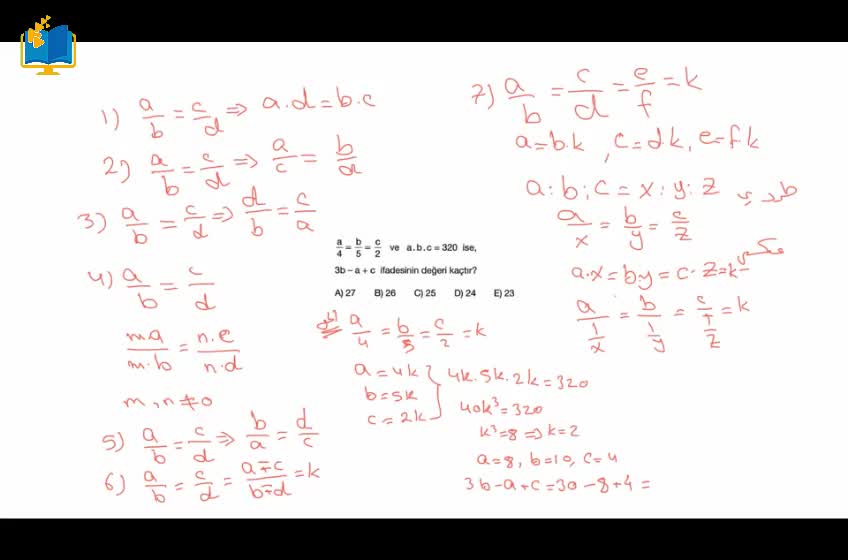 1) a/b = c/d ⇒ a.d = b.c
2) a/b = c/d ⇒ a/c = b/d
3) a/b = c/d ⇒ d/b = c/a
4) a/b = c/d
ma/m.b = n.c/n.d
m, n ≠ 0
5) a/b = c/d ⇒ b/a = d/c
6) a/b = c/d = a∓c/b∓d = k
a/4 = b/5 = c/2 ve a.b.c = 320 ise,
3b – a + c ifadesinin değeri kaçtır?
A) 27 B) 26 C) 25 D) 24 E) 23
a/4 = b/5 = c/2 = k
a = 4k
b = 5k
c = 2k
4k.5k.2k = 320
40k³ = 320
k³ = 8 ⇒ k = 2
a = 8, b = 10, c = 4
3b – a + c = 30 – 8 + 4 =
7) a/b = c/d = e/f = k
a = b.k, c = d.k, e = f k
a : b ; c = x : y : z طردي
a/x = b/y = c/z
a.x = b.y = c.z = k عكسي
a/(1/x) = b/(1/y) = c/(1/z) = k